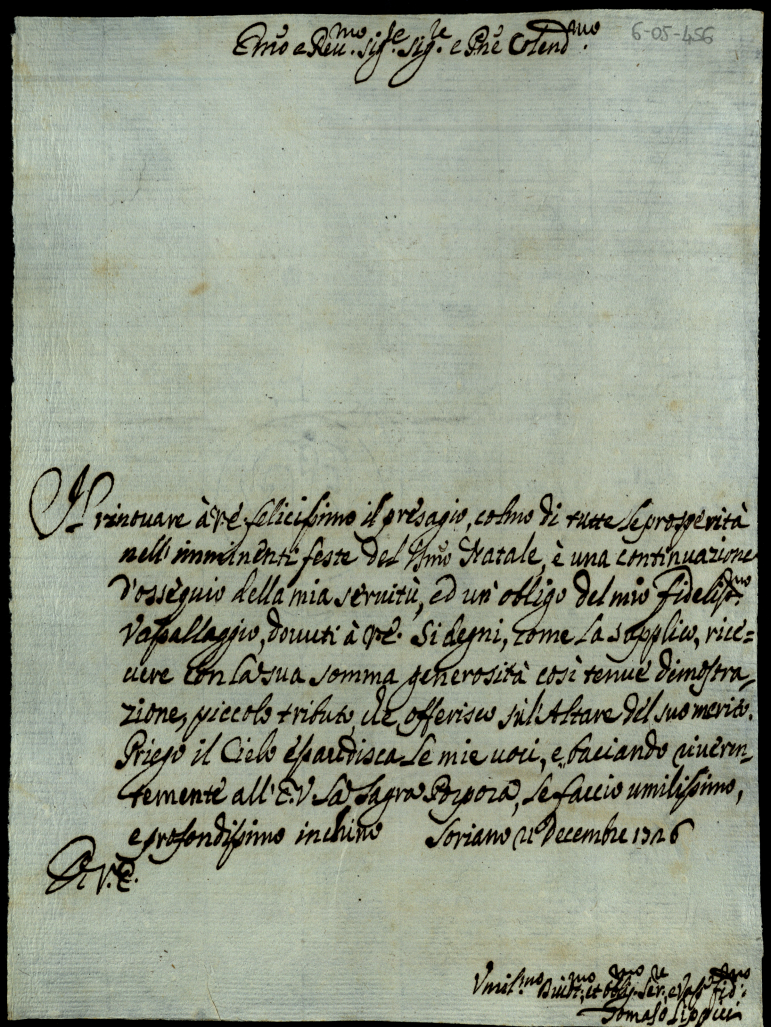 Emo e Reumo Sigre Sigre e Pne Colendmo
6-05-456
Il rinovare à V.E. felicissimo il presagio, colmo di tutte le prosperità
nell'imminenti feste del Smo Natale, è una continuazione
d'osseguio della mia servitù, ed un obligo del mio fidelismo
Vassallaggio, dovuti à V.E. Si degni, come La supplico, rice=
uere con la sua somma generosità così tenue dimostra,
zione, piccolo tributo, che offerisco sul'Altare del suo merito.
Priego il Cielo esaudisca le mie uoci, e baciando riueren,
temente all'E.V. la Sagra Porpora, le faccio umilissimo,
e profondissimo inchino Soriano Decembre 1726
Di V.E.
Umilmo Diuotmo et obligmo Serre e Vassо fidmo
Tomaso